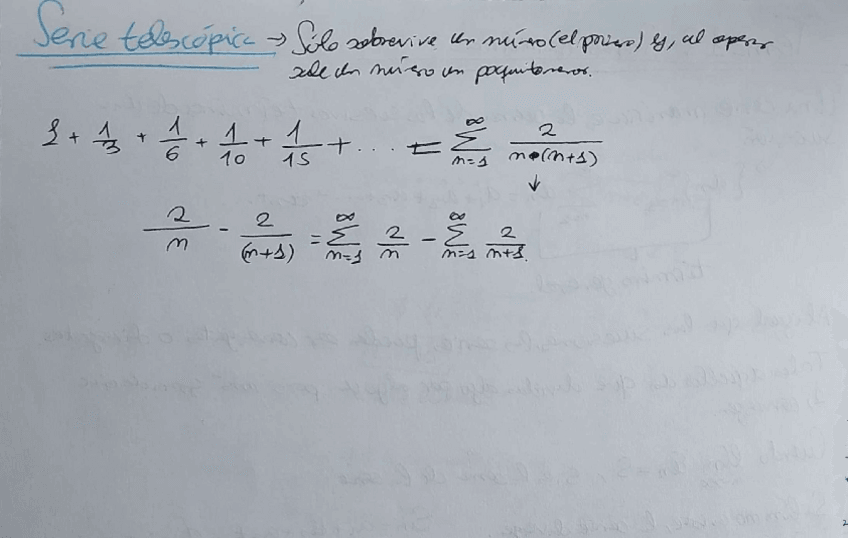 Serie telescópica → Sólo sobrevive un número (el primero) y, al operar
sale un número un poquito menos.
1 + 1/3 + 1/6 + 1/10 + 1/15 + ... = ∑_{n=1}^{∞} 2/(n·(n+1))
↓
2/n - 2/(n+1) = ∑_{n=1}^{∞} 2/n - ∑_{n=1}^{∞} 2/(n+1).